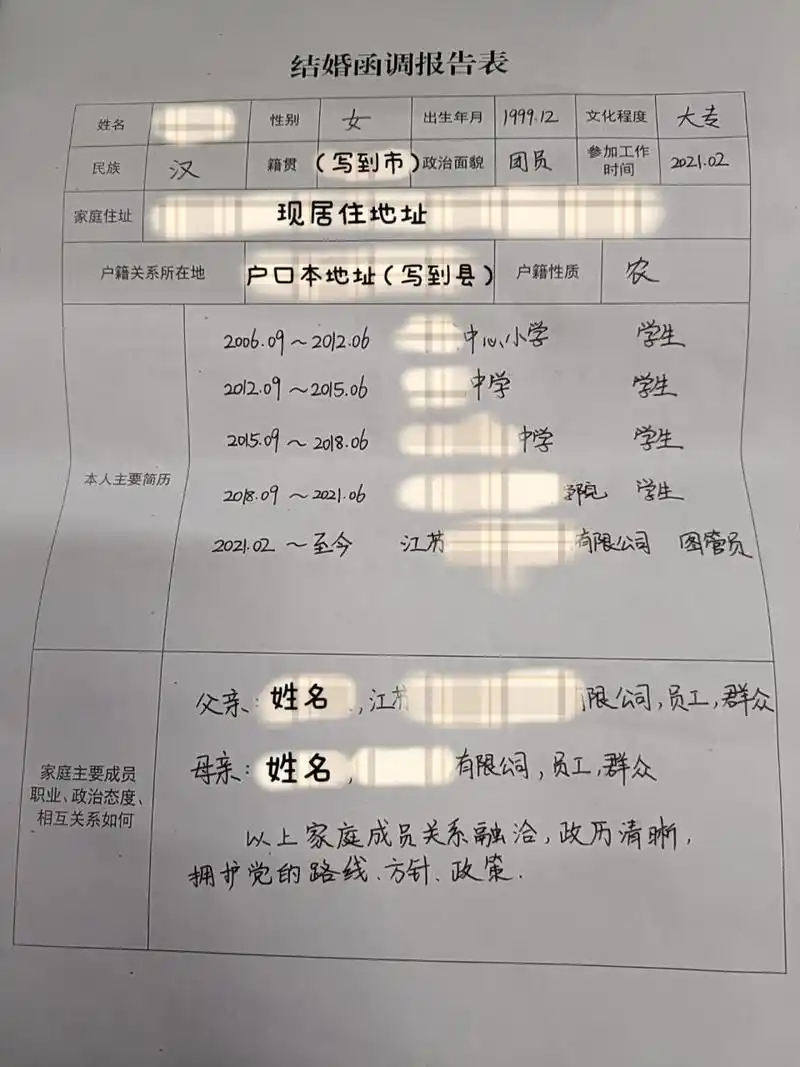 结婚函调报告表
姓名 性别 女 出生年月 1999.12 文化程度 大专
民族 汉 籍贯 (写到市) 政治面貌 团员 参加工作时间 2021.02
家庭住址 现居住地址
户籍关系所在地 户口本地址(写到县) 户籍性质 农
本人主要简历
2006.09~2012.06 中心小学 学生
2012.09~2015.06 中学 学生
2015.09~2018.06 中学 学生
2018.09~2021.06 学生
2021.02~至今 江苏 有限公司 图管员
家庭主要成员
职业、政治态度、
相互关系如何
父亲:姓名,江苏 限公司,员工,群众
母亲:姓名, 有限公司,员工,群众
以上家庭成员关系融洽,政历清晰,
拥护党的路线、方针、政策.